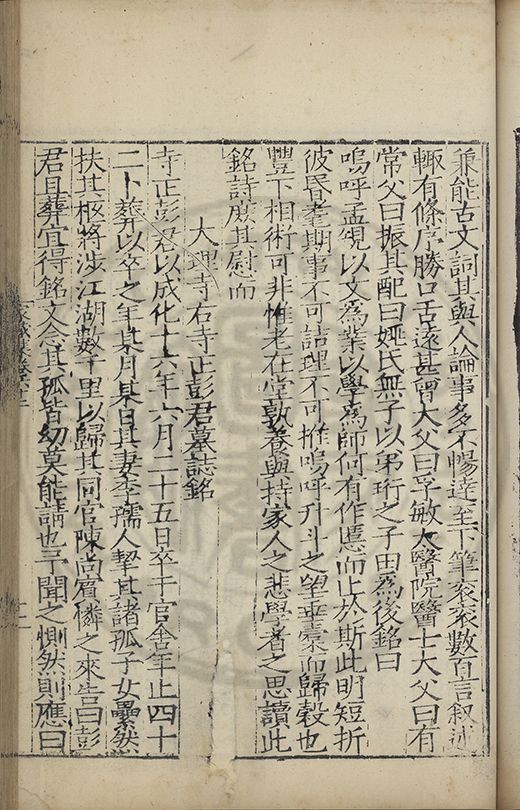 兼能古文詞其與人論事多不暢達至下筆袞袞數百言叙述
輒有條序勝口舌遠甚曾大父曰孚敏大醫院醫士大父曰有
常父曰振其配曰姚氏無子以弟珩之子田為後銘曰
嗚呼孟覬以文為業以學為師何有作慝而止於斯此明短折
彼昏耄期事不可詰理不可推嗚呼升斗之望垂橐而歸穀也
豐下相術可非惟老在堂敦養與持家人之悲學者之思讀此
銘詩庶其慰而
大理寺右寺正彭君墓誌銘
寺正彭君以成化十六年六月二十五日卒于官舍年止四十
二卜葬以卒之年某月某日其妻李孺人挈其諸孤子女纍然
扶其柩將涉江湖數千里以歸其同官陳尚賓憐之來告曰彭
君且葬宜得銘文念其孤皆幼莫能請也予聞之惻然則應曰